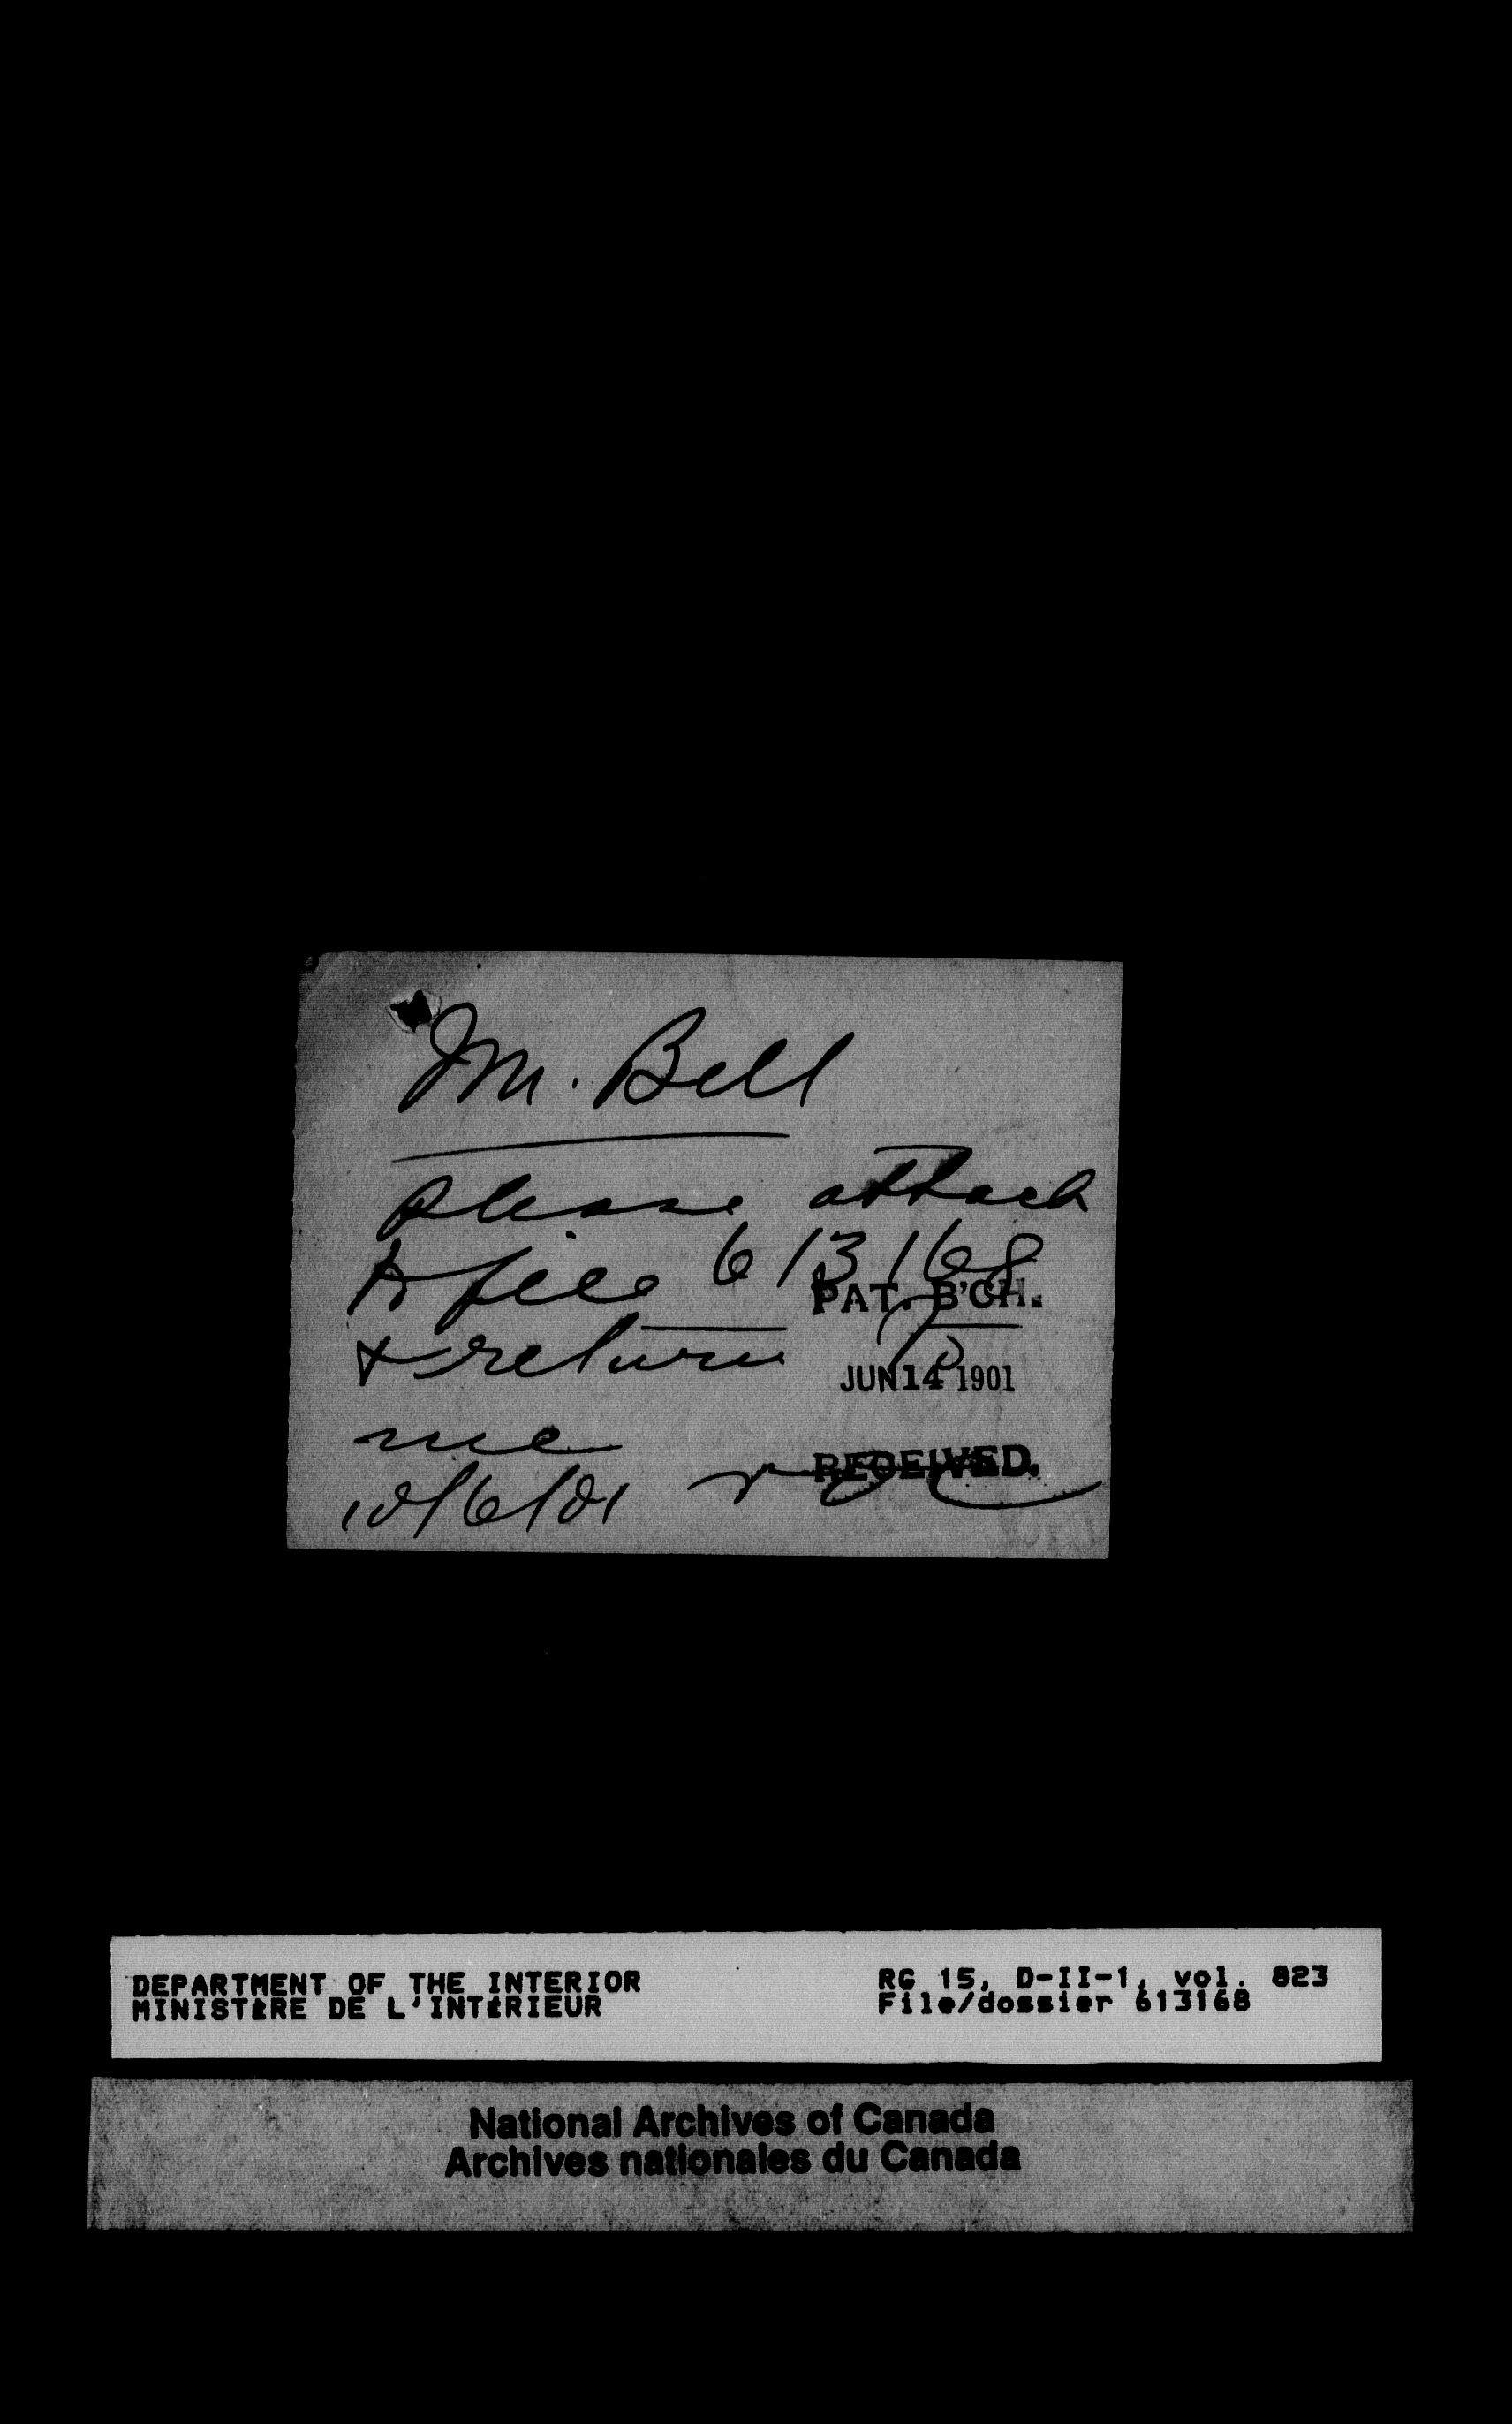 Mr. Bell
please attach
to file 613168
PAT. B'CH.
& return to
JUN 14 1901
me
RECEIVED.
10/6/01
DEPARTMENT OF THE INTERIOR
MINISTÈRE DE L'INTÉRIEUR
RG 15, D-II-1, vol. 823
File/dossier 613168
National Archives of Canada
Archives nationales du Canada